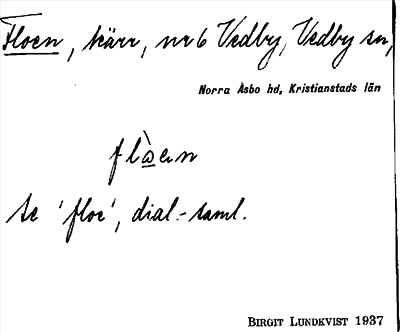 Floen, kärr, nr 6 Vedby, Vedby sn,
Norra Åsbo hd, Kristianstads län
flȯ̠en
se 'floe', dial.-saml.
BIRGIT LUNDKVIST 1937